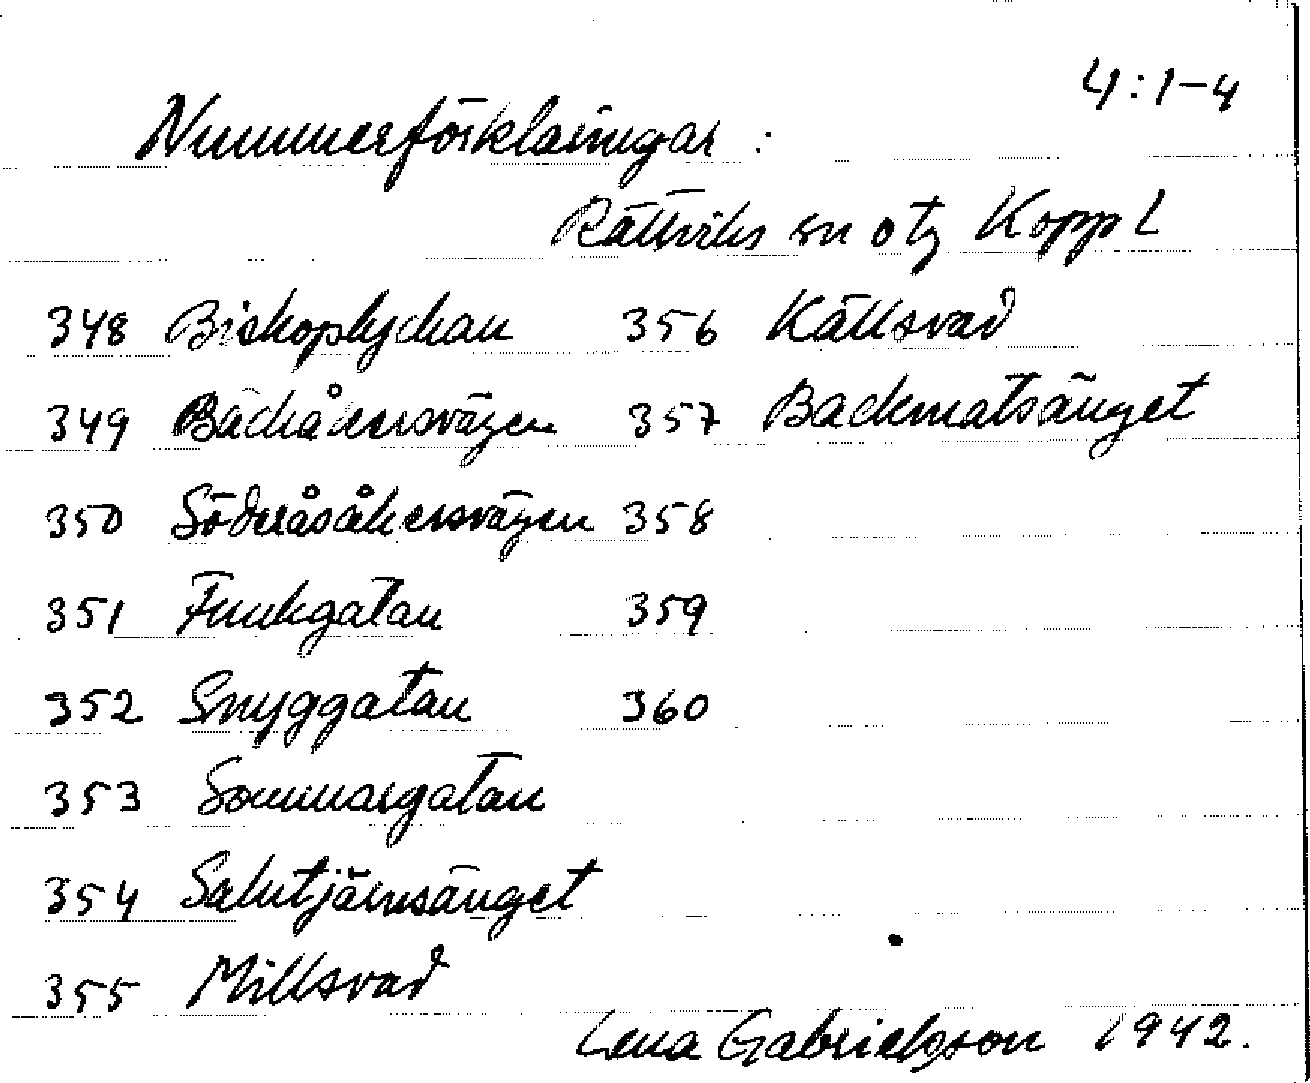 4:1-4
Nummerförklaringar :
Rättviks sn o tg Kopp L
348 Biskoplyckan 356 Källsvad
349 Bäckåkersvägen 357 Backmatsänget
350 Söderåsåkersvägen 358
351 Funkgatan 359
352 Snyggatan 360
353 Sommargatan
354 Saluttjärnsänget
355 Millsvad
Lena Gabrielsson 1942.